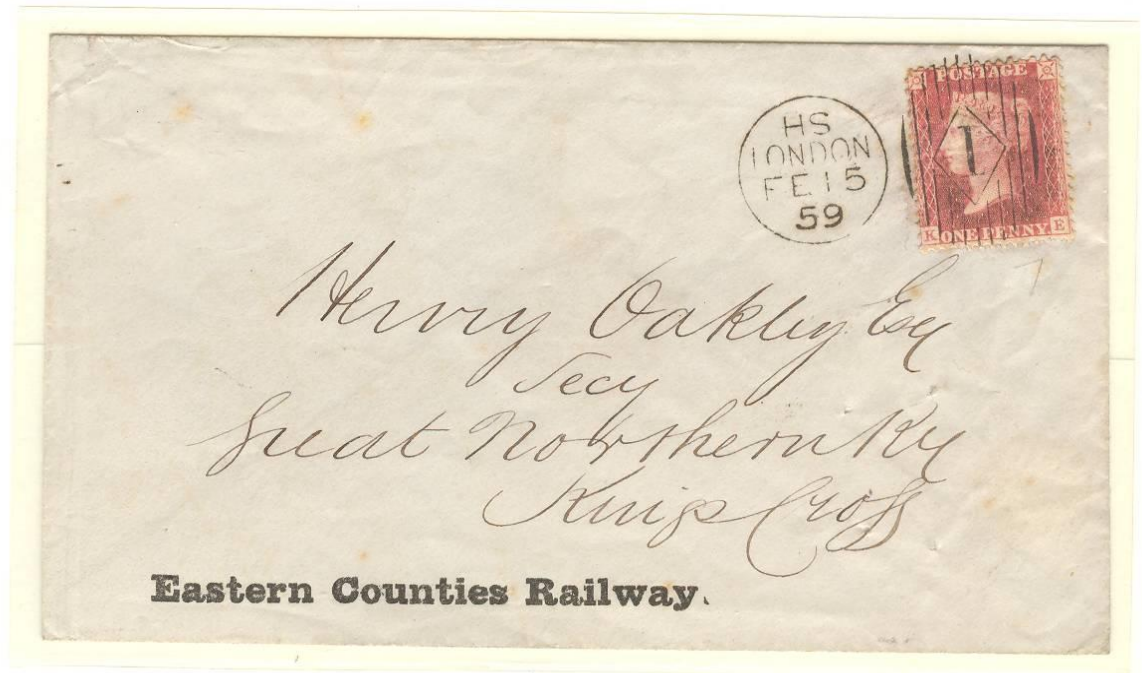 HS
LONDON
FE 15
59
POSTAGE
1
K ONE PENNY E
Henry Oakley Esq
Secy
Great Northern Ry
Kings Cross
Eastern Counties Railway.